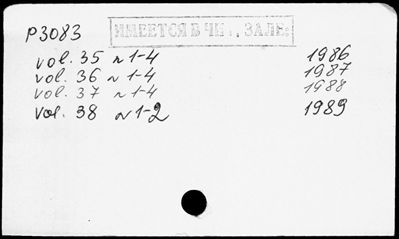 P3083
ИМЕЕТСЯ В ЧИТ. ЗАЛЕ
vol. 35 n 1-4 1986
vol. 36 n 1-4 1987
vol. 37 n 1-4 1988
vol. 38 n 1-2 1989